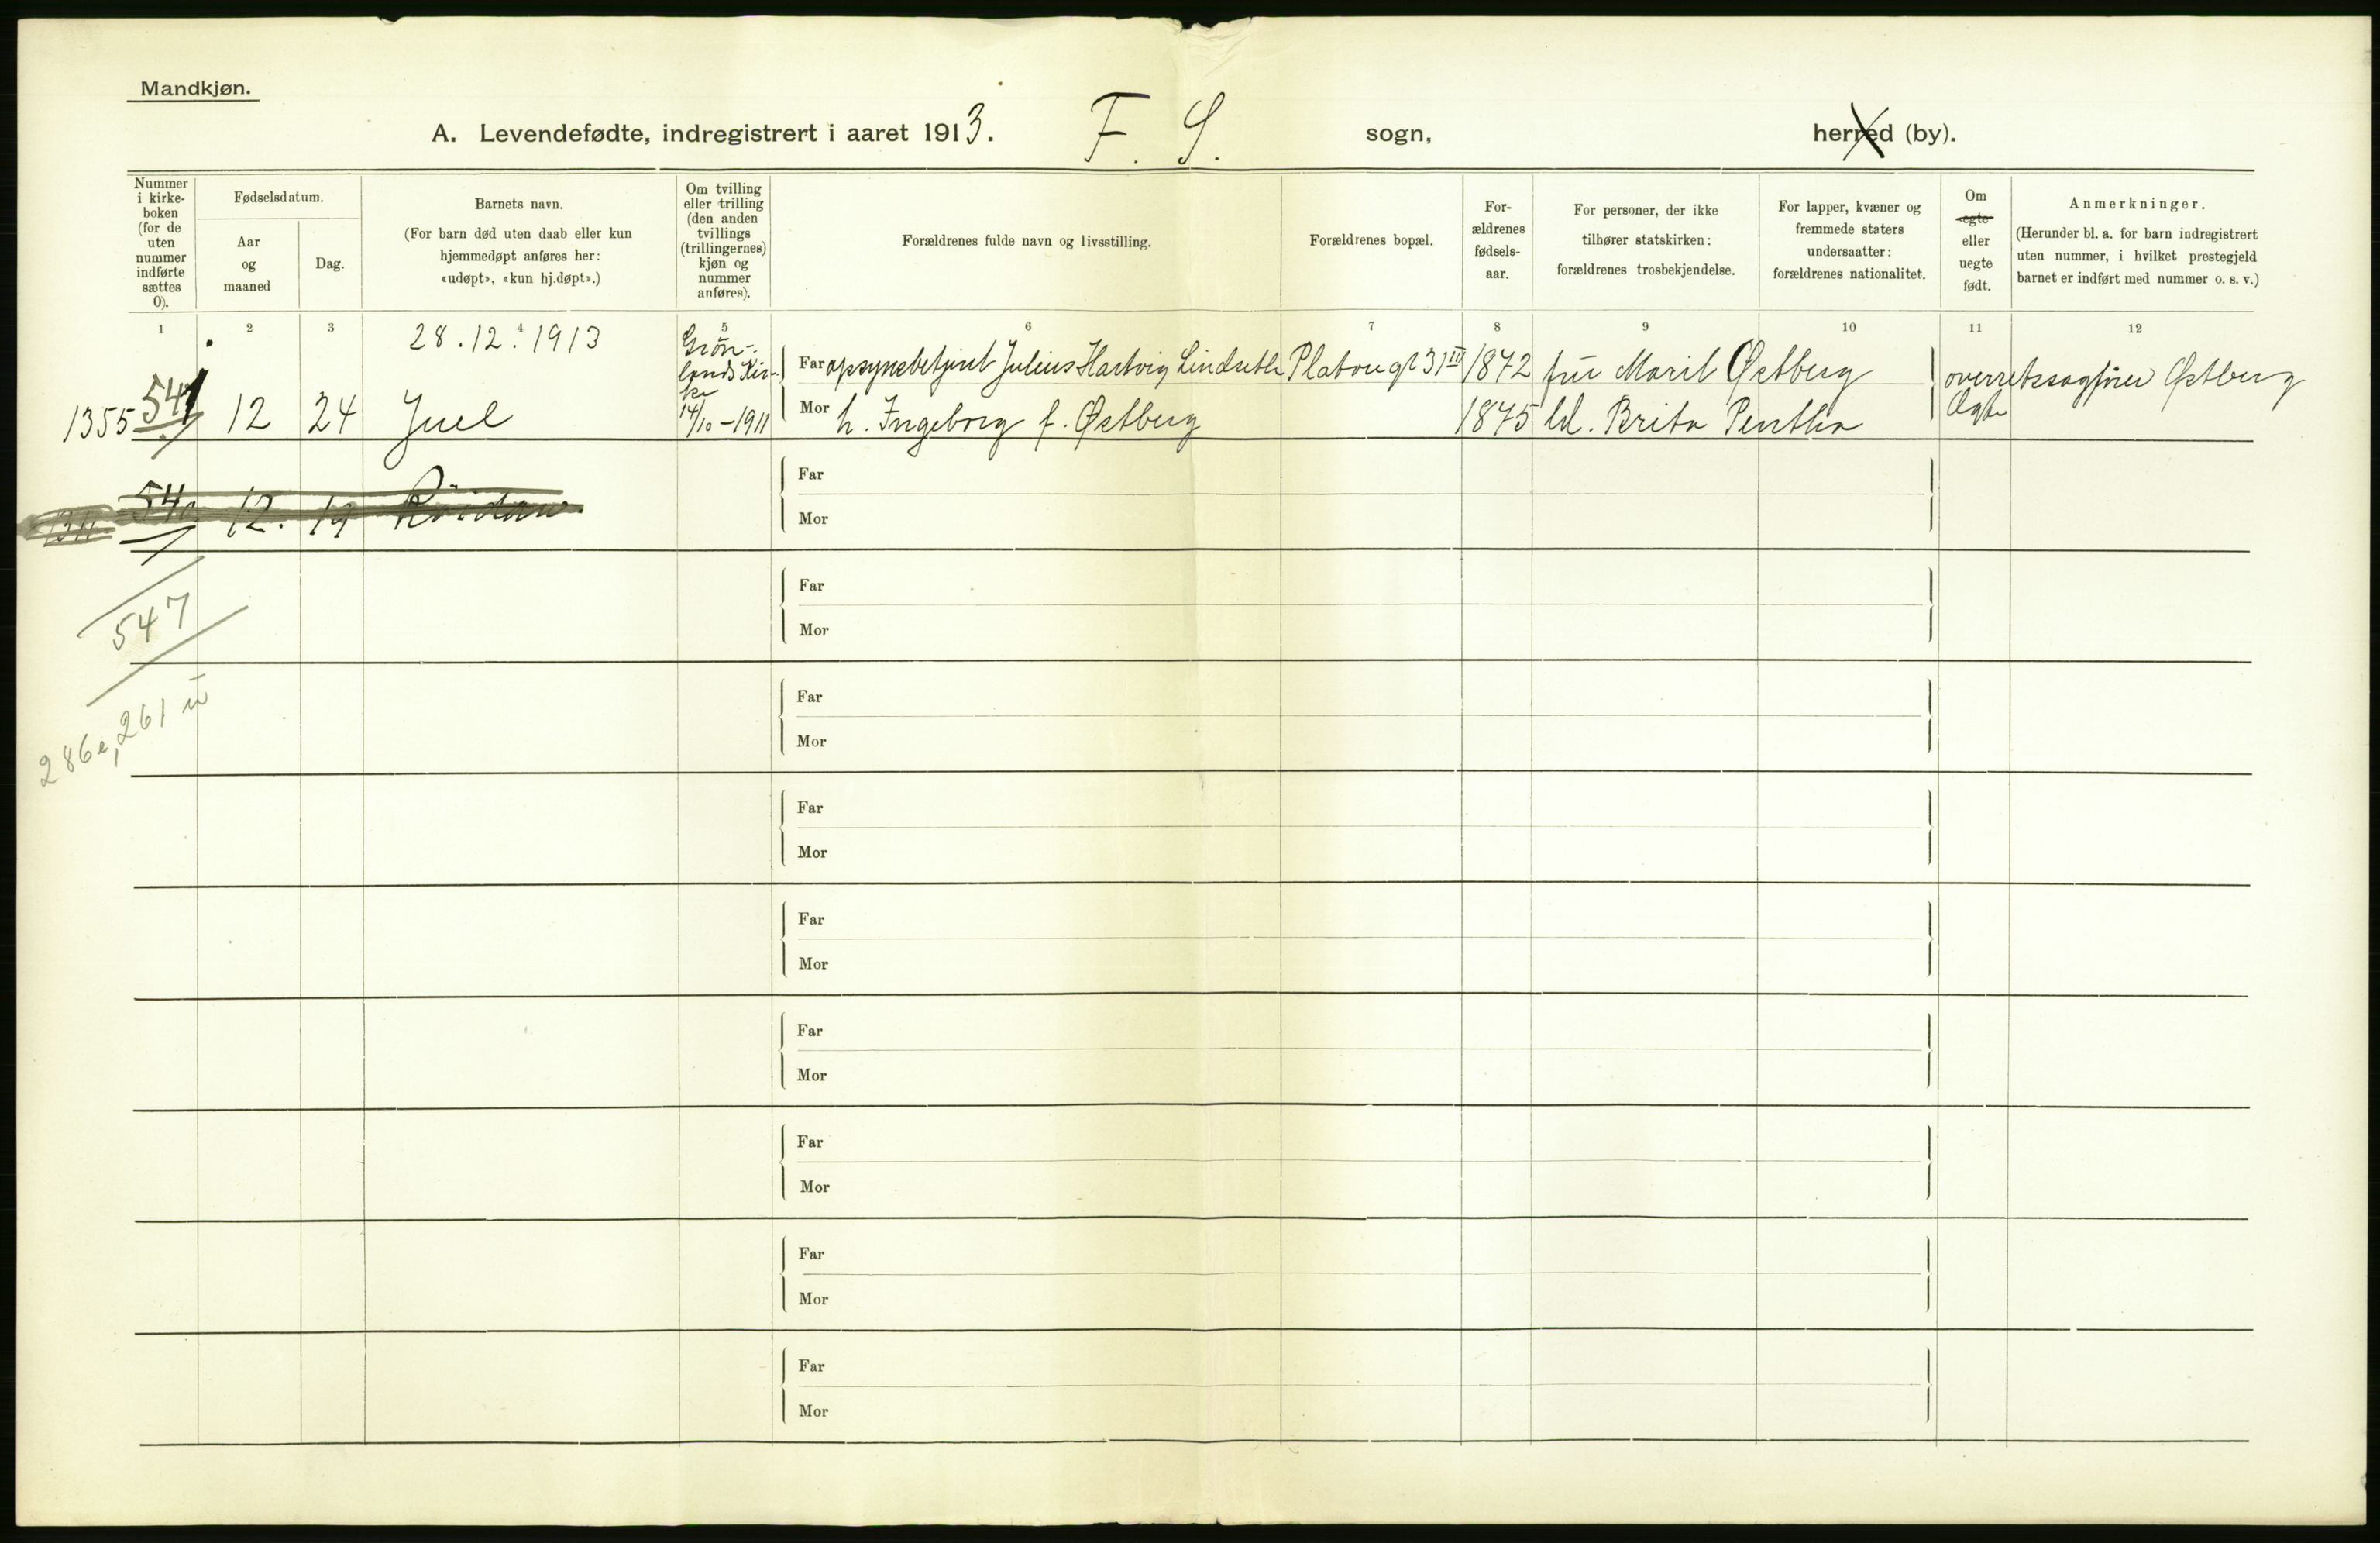 Mandkjøn.
A. Levendefødte, indregistrert i aaret 1913. F. S. sogn, herred (by).
Nummer
i kirke-
boken
(for de
uten
nummer
indførte
sættes
0).
Fødselsdatum.
Aar
og
maaned
Dag.
Barnets navn.
(For barn død uten daab eller kun
hjemmedøpt anføres her:
«udøpt», «kun hj.døpt».)
Om tvilling
eller trilling
(den anden
tvillings
(trillingernes)
kjøn og
nummer
anføres).
Forældrenes fulde navn og livsstilling.
Forældrenes bopæl.
For-
ældrenes
fødsels-
aar.
For personer, der ikke
tilhører statskirken:
forældrenes trosbekjendelse.
For lapper, kvæner og
fremmede staters
undersaatter:
forældrenes nationalitet.
Om
egte
eller
uegte
født.
Anmerkninger.
(Herunder bl. a. for barn indregistrert
uten nummer, i hvilket prestegjeld
barnet er indført med nummer o. s. v.)
1 2 3 4 5 6 7 8 9 10 11 12
28.12.1913
Grøn-
lands Kir-
ke
14/10-1911
Far opsynsbetjent Julius Hartvig Lindseth Platougt 31 III 1872 fru Marit Østberg overretssagfører Østberg
1355 541 12 24 Juel Mor h. Ingeborg f. Østberg 1875 Brita Ægte
12. 19
Far
Mor
547
Far
Mor
286e, 261 u
Far
Mor
Far
Mor
Far
Mor
Far
Mor
Far
Mor
Far
Mor
Far
Mor